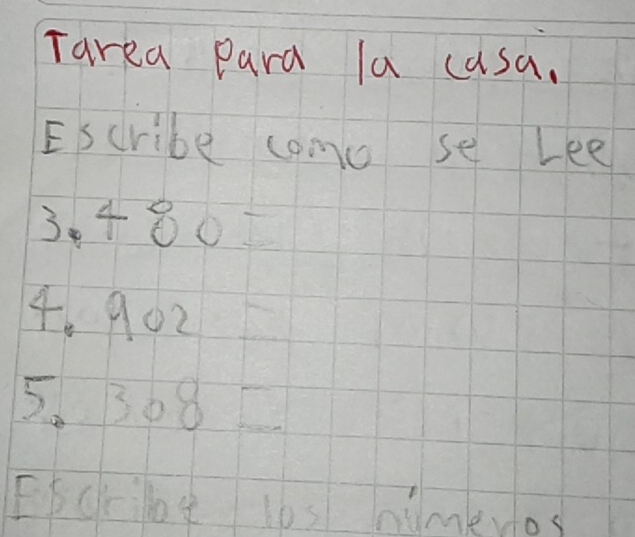 Tarea Para la casa.
Escribe como se Lee
3.480 =
4.902 =
5.308 =
Escribe los números